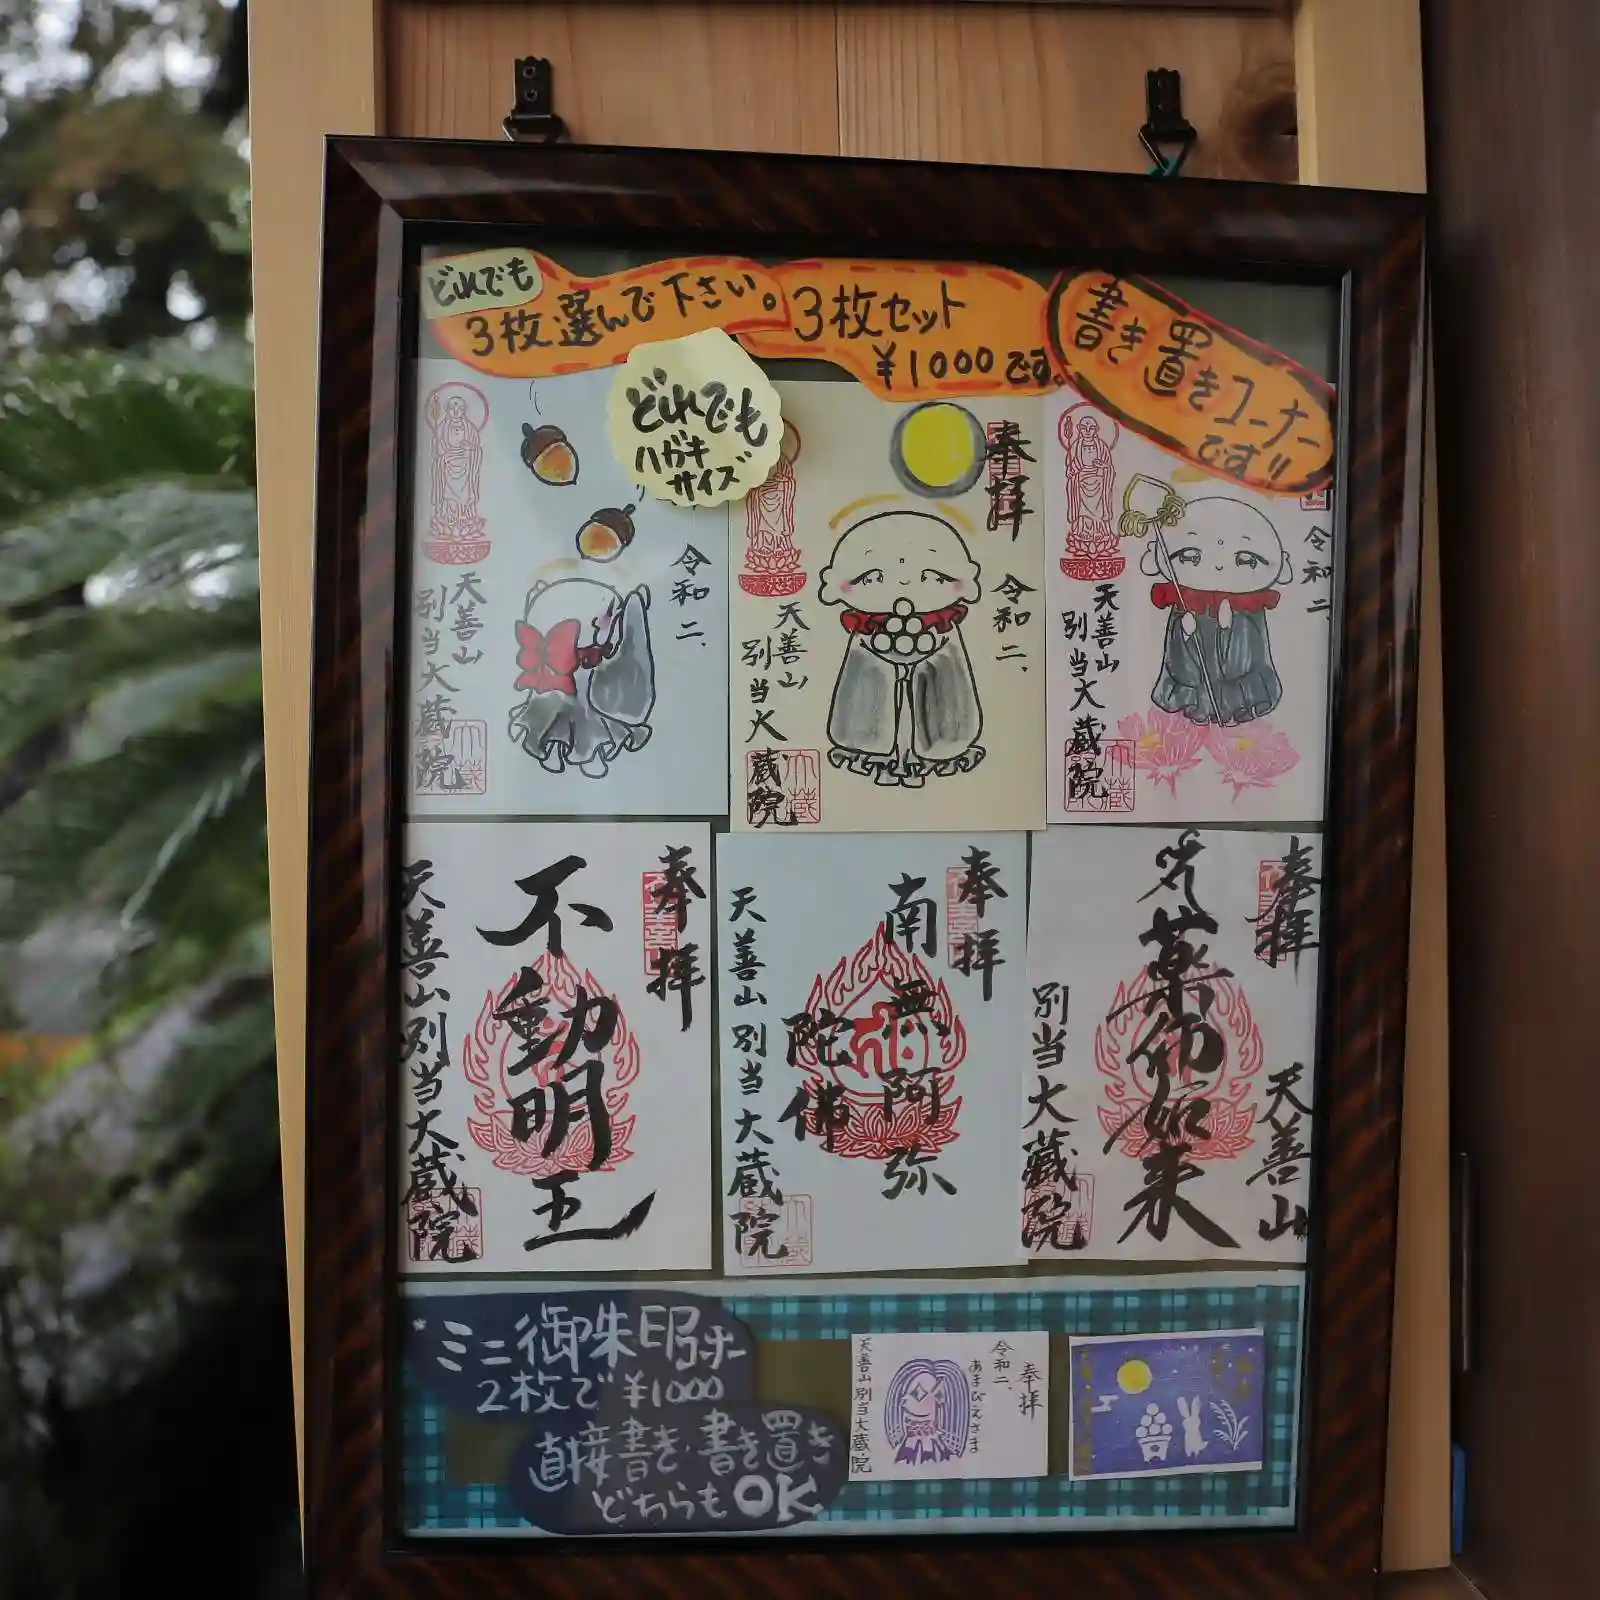 どれでも
3枚選んで下さい。
3枚セット
¥1000です。
書き置きコーナー
です!!
どれでも
ハガキ
サイズ
令和二、
天善山
別当大蔵院
奉拝
令和二、
天善山
別当大蔵院
令和二、
天善山
別当大蔵院
奉拝
不動明王
天善山別当大蔵院
奉拝
南無阿弥
陀佛
天善山別当大蔵院
奉拝
天善山
薬師如来
別当大蔵院
ミニ御朱印
2枚で¥1000
直接書き・書き置き
どちらもOK
奉拝
令和二、
あまびえさま
天善山別当大蔵院